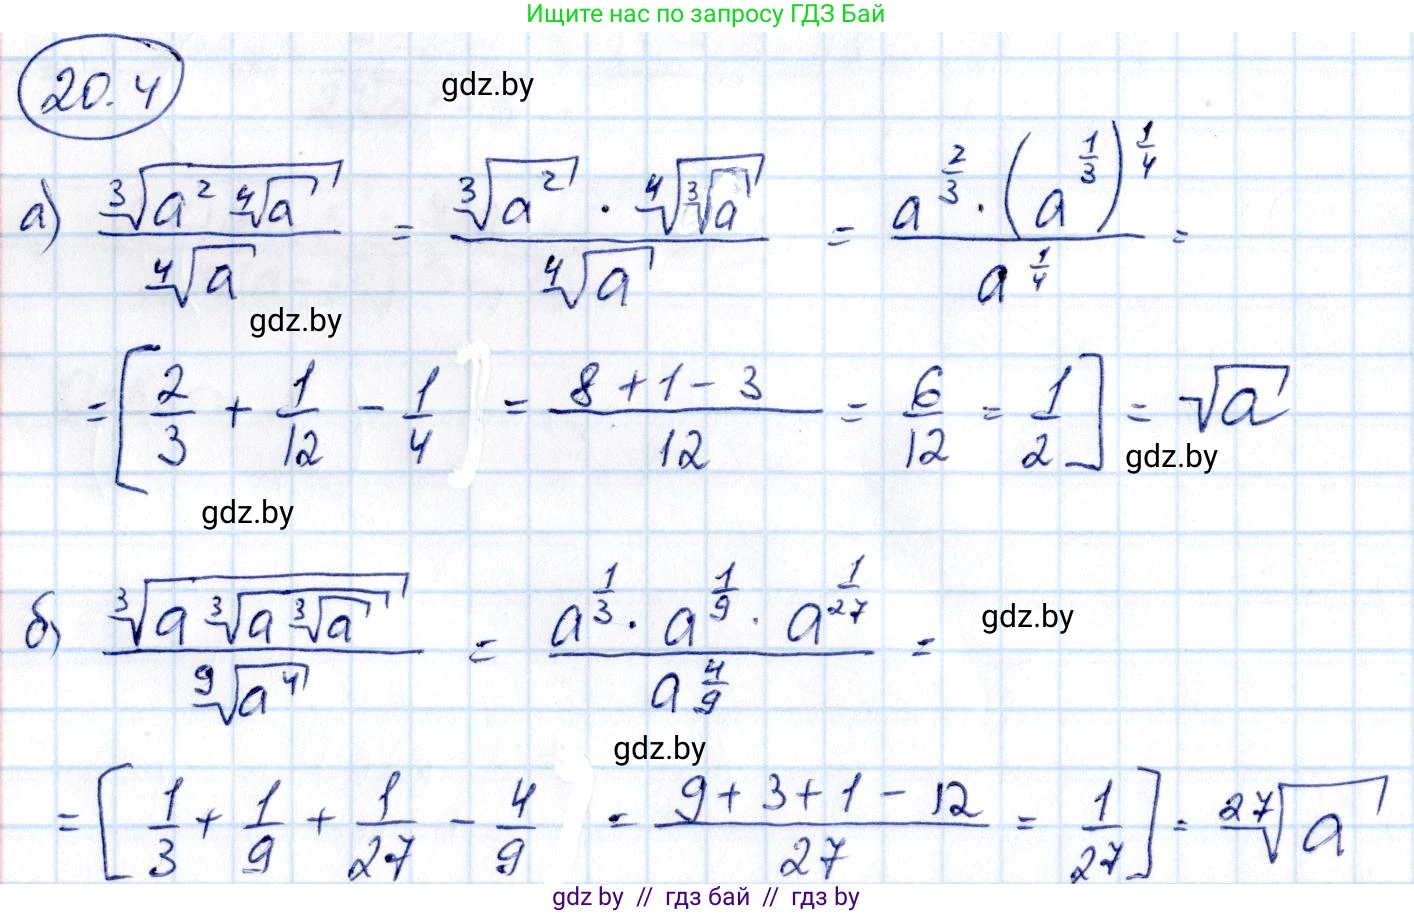 Ищите нас по запросу ГДЗ Бай
20.4
gdz.by
а) ∛(a² ∜a) / ∜a = ∛(a²) · ∜(∛a) / ∜a = a^(2/3) · (a^(1/3))^(1/4) / a^(1/4) =
gdz.by
= [2/3 + 1/12 - 1/4 = (8 + 1 - 3)/12 = 6/12 = 1/2] = √a
gdz.by
gdz.by
б) ∛(a ∛(a ∛a)) / ⁹√(a⁴) = a^(1/3) · a^(1/9) · a^(1/27) / a^(4/9) =
gdz.by
gdz.by
= [1/3 + 1/9 + 1/27 - 4/9 = (9 + 3 + 1 - 12)/27 = 1/27] = ²⁷√a
gdz.by // гдз бай // гдз by